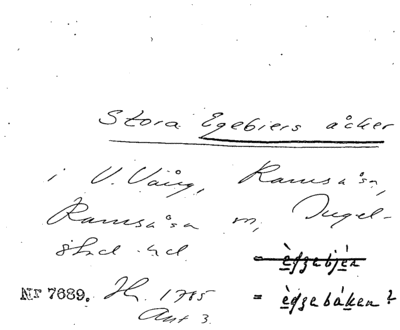 Stora Egebiers åcker
i V. Vång, Ramsåsa,
Ramsåsa sn, Ingel-
stad hd
= èggebjèn
Nr 7689. Hr. 1785 = èggebáken?
Akt 3.